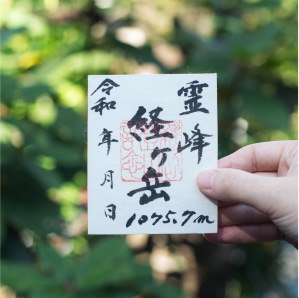 霊峰
経ヶ岳
1075.7m
令和 年 月 日